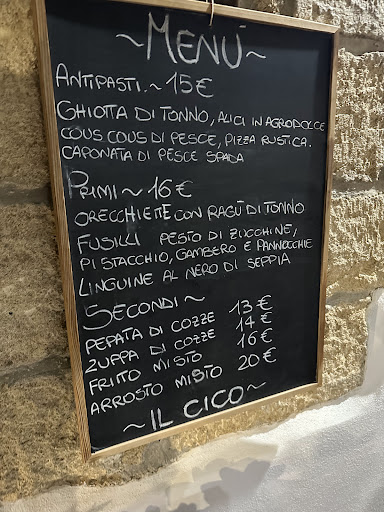 ~MENÚ~
ANTIPASTI.~15€
GHIOTTA DI TONNO, ALICI IN AGRODOLCE
COUS COUS DI PESCE, PIZZA RUSTICA.
CAPONATA DI PESCE SPADA
PRIMI~16€
ORECCHIETTE CON RAGÙ DI TONNO
FUSILLI PESTO DI ZUCCHINE,
PISTACCHIO, GAMBERO E PANNOCCHIE
LINGUINE AL NERO DI SEPPIA
SECONDI~
PEPATA DI COZZE 13€
ZUPPA DI COZZE 14€
FRITTO MISTO 16€
ARROSTO MISTO 20€
~IL CICO~